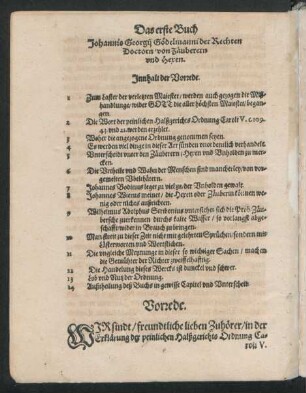 Das erste Buch
Johannis Georgij Gödelmanni der Rechten
Doctorn von Zäuberern
vnd Hexen.
Innhalt der Vorrede.
1 Zum Laster der verletzten Maiestet / werden auch gezogen die Miß-
handlunge wider GOTT die aller höchsten Maiestet began-
gen.
2 Die Wort der peinlichen Halßgerichts Ordnung Caroli V. c. 109.
44 vnd 21. werden erzehlet.
3 Woher die angezogene Ordnung genommen sey.
4 Es werden viel dinge in dieser Art sünden vnordentlich verhandelt.
5 Vnterscheide vnter den Zäuberern / Hexen vnd Vnholden zu mer-
cken.
6 Die Vrtheile vnd Wahn der Menschen sind mancherley von vor-
gemeldten Vbelthätern.
7 Johannes Bodinus leget zu viel zu der Vnholden gewalt.
8 Johannes Wierus meinet / die Hexen oder Zäubern können we-
nig oder nichts außrichten.
9 Wilhelmus Adolphus Scribonius vnterstehet sich die Prob Zäu-
berische zuerkennen durchs kalte Wasser / so vorlangst abge-
schafft wider in Brauch zu bringen.
10 Man sicht zu dieser Zeit nicht mit gelehrten Sprüchen / sondern mit
Lästerworten vnd Wortstichen.
11 Die vngleiche Meynunge in dieser so wichtiger Sachen / machen
die Gemühter der Richter zweiffelhafftig.
12 Die Handelung dieses Wercks ist dunckel vnd schwer.
13 Lob vnd Nutz der Ordnung.
14 Außtheilung deß Buchs in gewisse Capitel vnd Vnterscheid.
Vorrede.
WIR sindt / freundtliche lieben Zuhörer / in der
Erklärung der peinlichen Halßgerichts Ordnung Ca-
roli V.